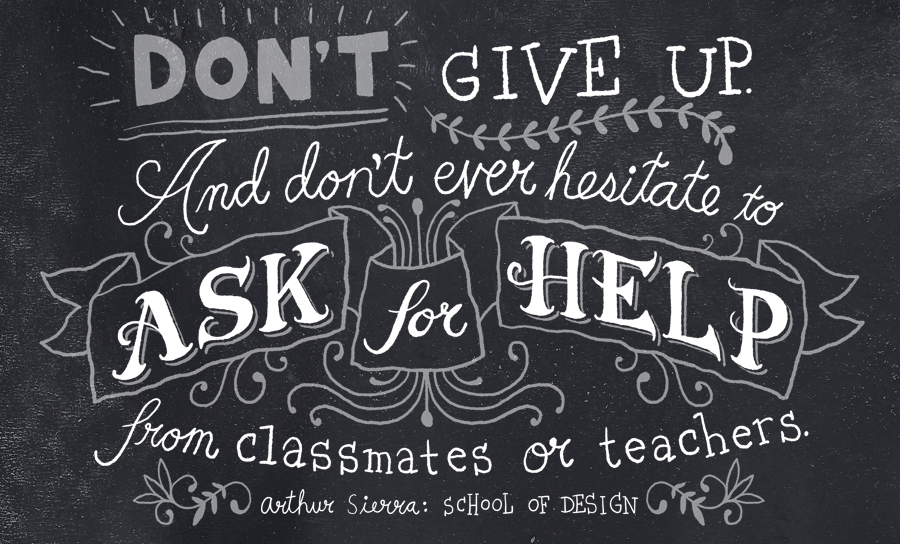 DON'T GIVE UP.
And don't ever hesitate to
ASK for HELP
from classmates or teachers.
arthur Sierra: SCHOOL OF DESIGN